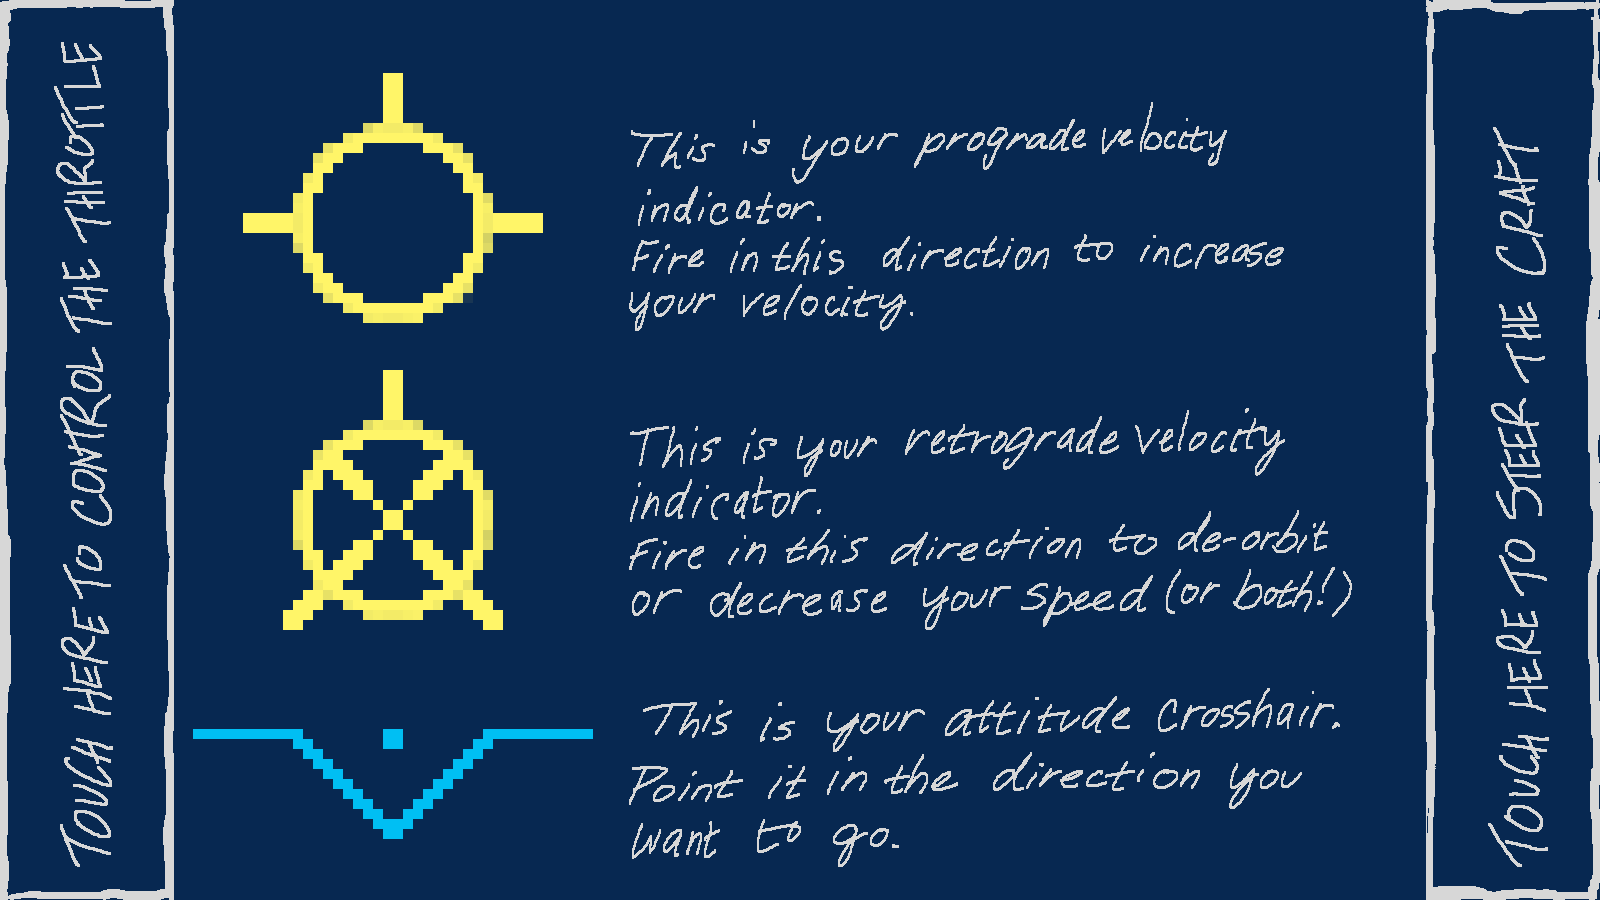 TOUCH HERE TO CONTROL THE THROTTLE
This is your prograde velocity
indicator.
Fire in this direction to increase
your velocity.
This is your retrograde velocity
indicator.
Fire in this direction to de-orbit
or decrease your speed (or both!)
This is your attitude crosshair.
Point it in the direction you
want to go.
TOUCH HERE TO STEER THE CRAFT